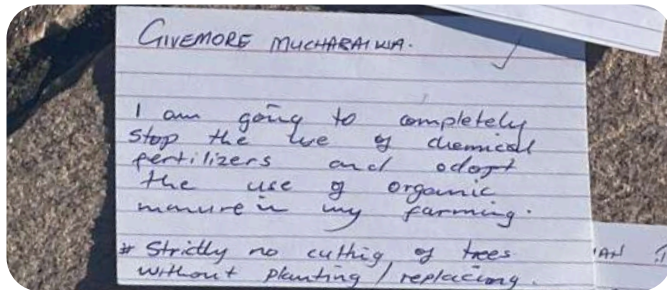 GIVEMORE MUCHABAIWA.
I am going to completely
stop the use of chemical
fertilizers and adopt
the use of organic
manure in my farming.
# Strictly no cutting of trees
without planting / replacing.